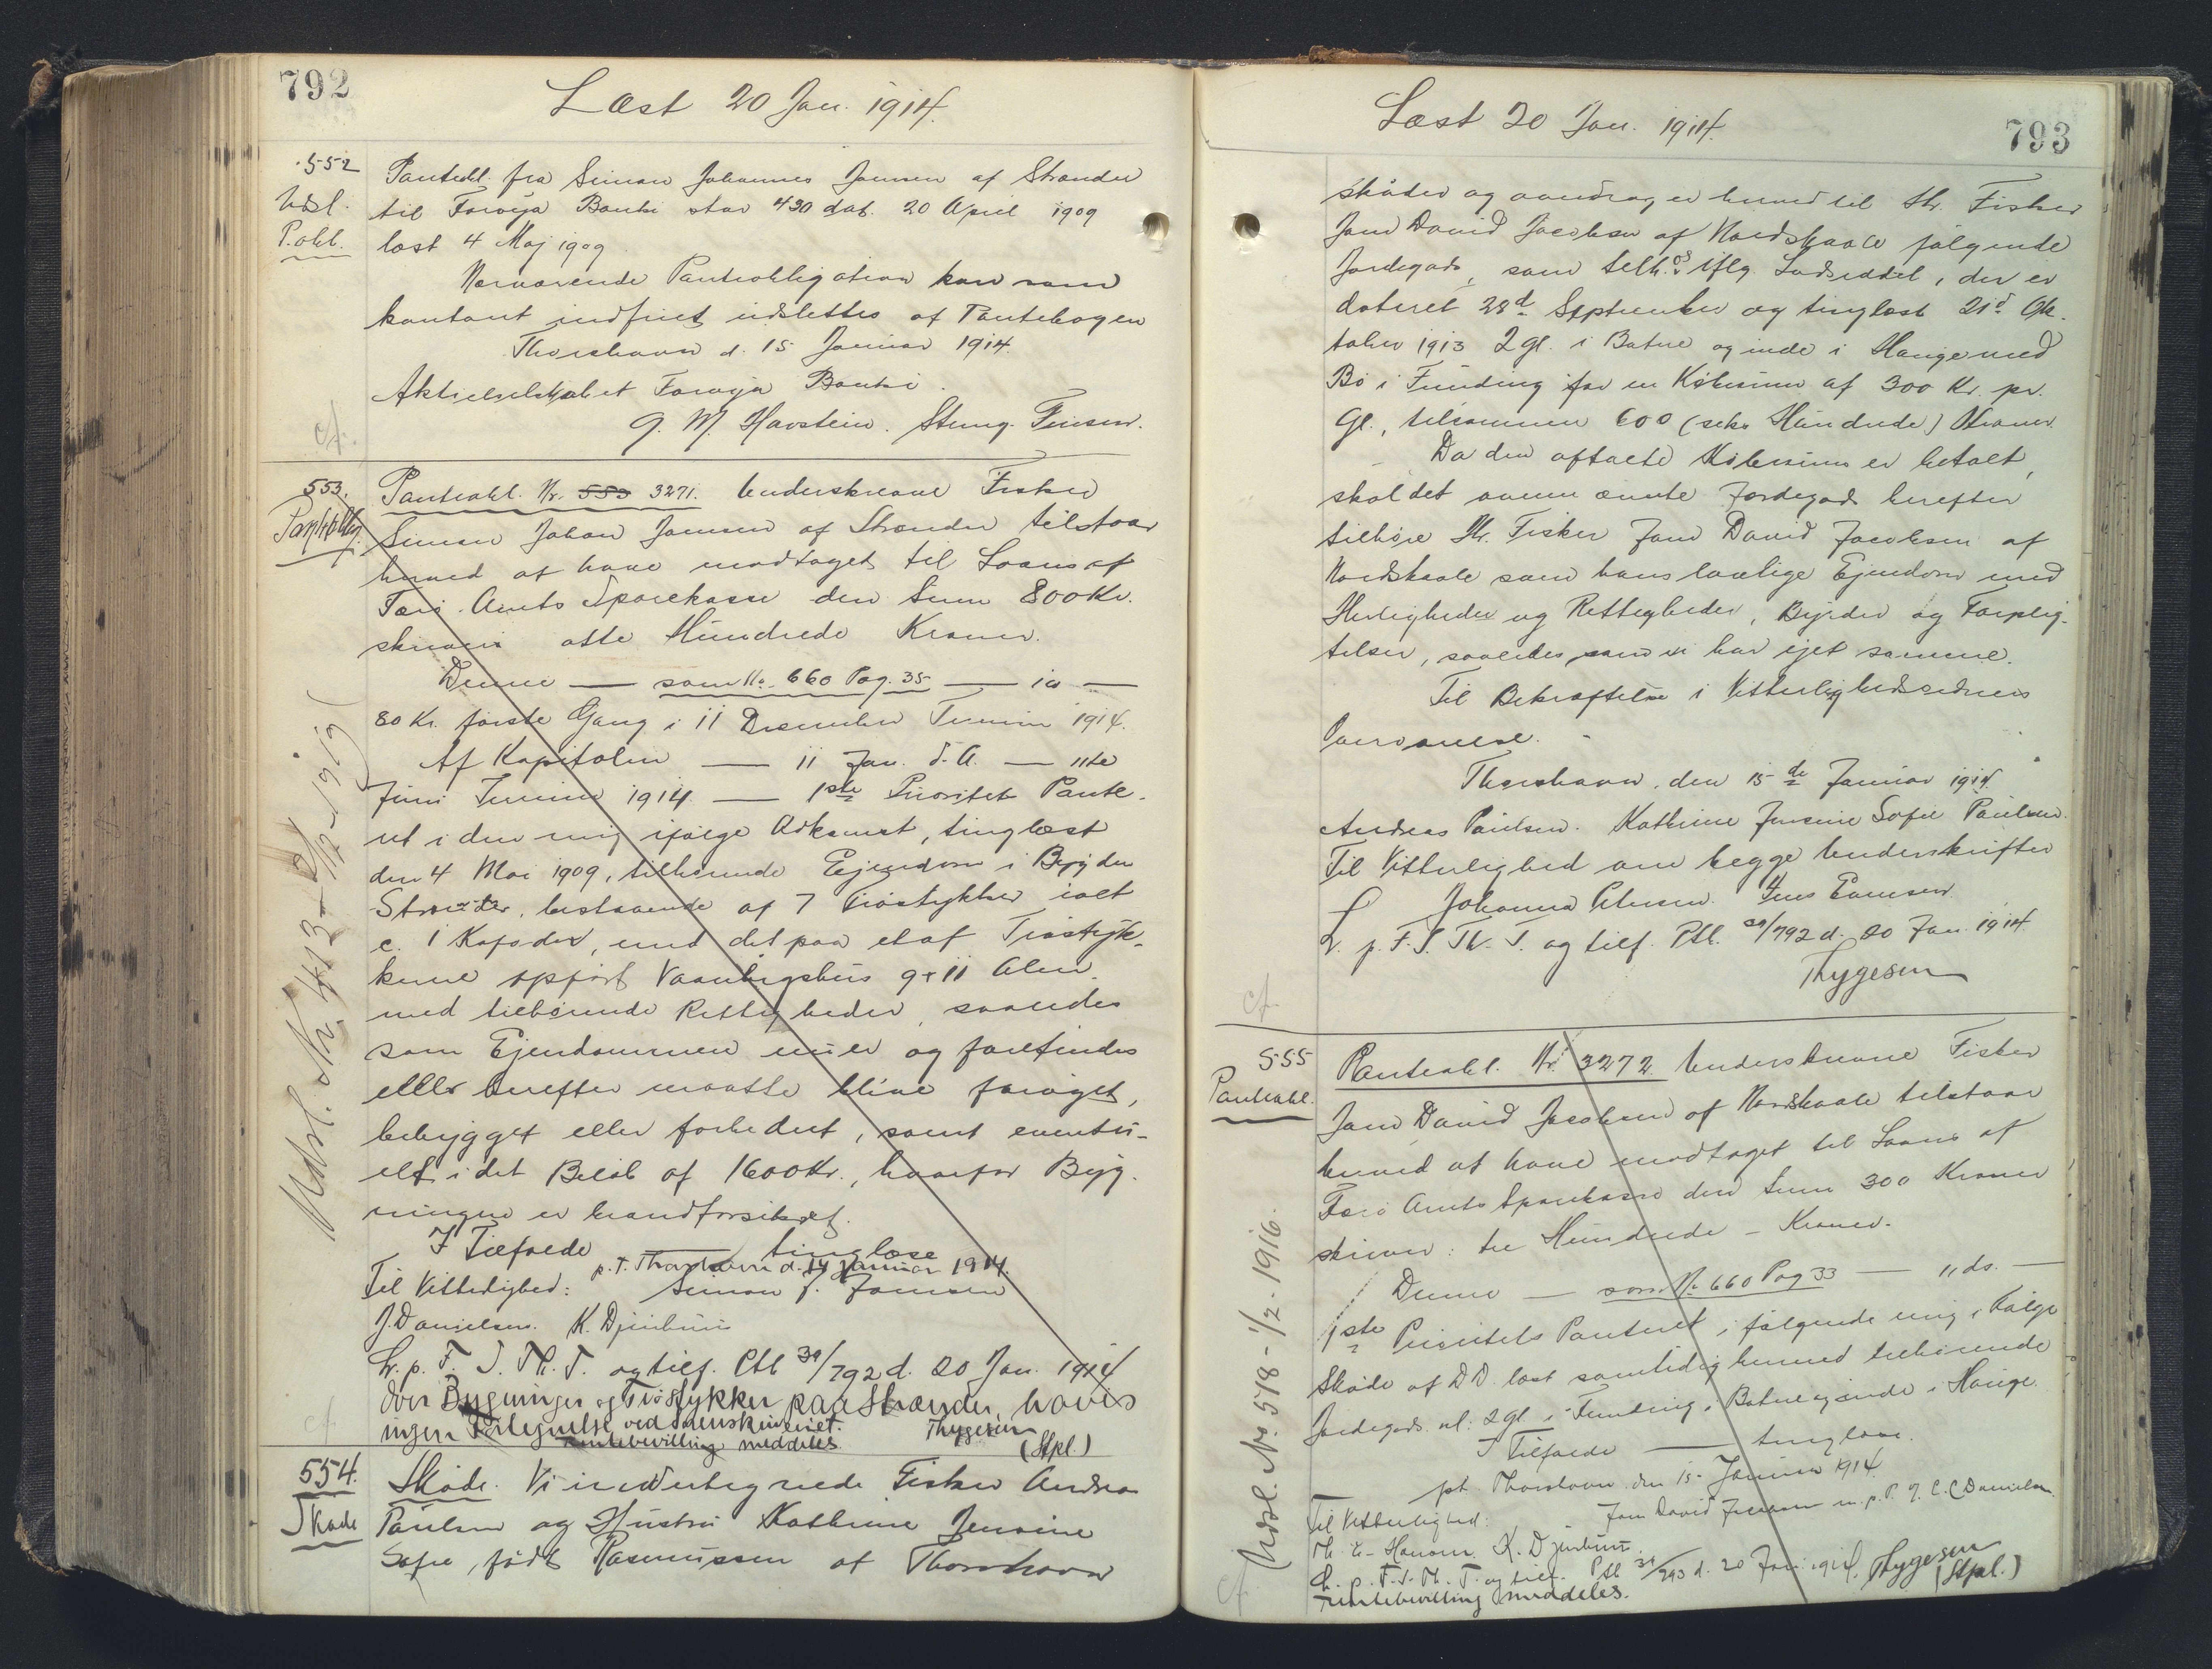 792
Læst 20 Jan. 1914.
552
Udsl.
P.obl.
Panteobl. fra Simon Johannes Joensen af Strænder
til Foroya Banki stor 430 dat. 20 April 1909
læst 4 Maj 1909
Nærværende Panteobligation kan som
kontant indfriet udslettes af Pantebogen
Thorshavn d. 15 Januar 1914.
Aktieselskabet Foroya Banki.
J. M. Havsteen. Steing. Finsen.
cf.
553.
Panteoblig.
Panteobl. Nr. 553 3271. Underskrevne Fisker
Simon Johan Joensen af Strænder tilstaar
herved at have modtaget til Laans af
Færø Amts Sparekasse den Sum 800 Kr.
skriver otte Hundrede Kroner.
Denne — som No. 660 Pag. 35 — ia —
80 Kr. første Gang i 11 December Termin 1914.
Af Kapitalen — 11 Jan. d. A. — 11te
Juni Termin 1914 — 1ste Prioritets Pante-
ret i den mig ifølge Adkomst, tinglæst
den 4 Mai 1909, tilhørende Ejendom i Bygden
Strænder, bestaaende af 7 Trøstykker ialt
c. 1 Kafodes, med det paa et af Trøstyk-
kerne opført Vaaningshus 9 x 11 Alen
med tilhørende Rettigheder, saaledes
som Ejendommen nu er og forefindes
eller herefter maatte blive forøget,
bebygget eller forbedret, samt eventu-
elt i det Beløb af 1600 Kr., hvorfor Byg-
ningen er brandforsikret.
I Tilfælde — tinglæse
p.T. Thorshavn d. 14 Januar 1914.
Til Vitterlighed: Simon J. Joensen
J. Danielsen. K. Djurhuus
L. p. F. S. Th. T. og tilf. Ptb 30/792 d. 20 Jan. 1914
Over Bygninger og Trøstykker paa Strænder haves
ingen Hjemmel ved Sorenskriveriet.
rentebevilling meddeles. Thygesen
(Stpl.)
Udsl. Nr. 413 - 2/12 - 1919
cf.
554.
Skøde
Skøde. Vi undertegnede Fisker Andreas
Paulsen og Hustru Kathrine Jensine
Sofie, født Rasmussen af Thorshavn
793
Læst 20 Jan. 1914.
skøder og overdrager herved til Hr. Fisker
Jens David Jacobsen af Nordskaale følgende
Jordegods, som tilh. os iflg. Lodseddel, der er
dateret 28d September og tinglæst 21d Ok-
tober 1913 2 gl. i Batne og inde i Hauge med
Bø i Funding for en Købesum af 300 Kr. pr.
Gl., tilsammen 600 (seks Hundrede) Kroner.
Da den aftalte Købesum er betalt,
skal det ovennævnte Jordegods herefter
tilhøre Hr. Fisker Jens David Jacobsen af
Nordskaale som hans lovlige Ejendom med
Herligheder og Rettigheder, Byrder og Forplig-
telser, saaledes som vi har ejet samme.
Til Bekræftelse i Vitterlighedsvidners
Overværelse.
Thorshavn, den 15de Januar 1914.
Andreas Paulsen. Kathrine Jensine Sofie Paulsen.
Til Vitterlighed om begge Underskrifter
Johanna Petersen. Jens Evensen.
L. p. F. S. Th. T. og tilf. Ptb. 30/792 d. 20 Jan. 1914
Thygesen
cf.
555
Panteobl.
Panteobl. Nr. 3272 Underskrevne Fisker
Jens David Jacobsen af Nordskaale tilstaar
herved at have modtaget til Laans af
Færø Amts Sparekasse den Sum 300 Kroner
skriver: tre Hundrede — Kroner.
Denne — som No. 660 Pag 33 — 11 ds. —
1ste Prioritets Panteret i følgende mig i Følge
Skøde af D.D. læst samtidig hermed tilhørende
Jordegods nl. 2 gl. i Funding, Batne og inde i Hauge
I Tilfælde — tinglæse.
pt. Thorshavn den 15 Januar 1914.
Til Vitterlighed: Jens David Jacobsen m. p. P. J. C. C. Danielsen
M. E. Hansen K. Djurhuus.
L. p. F. S. Th. T. og tilf. Ptb 30/793 d. 20 Jan. 1914. Thygesen
rentebevilling meddeles. (Stpl.)
Udsl. No. 518 - 1/2 - 1916.
cf.